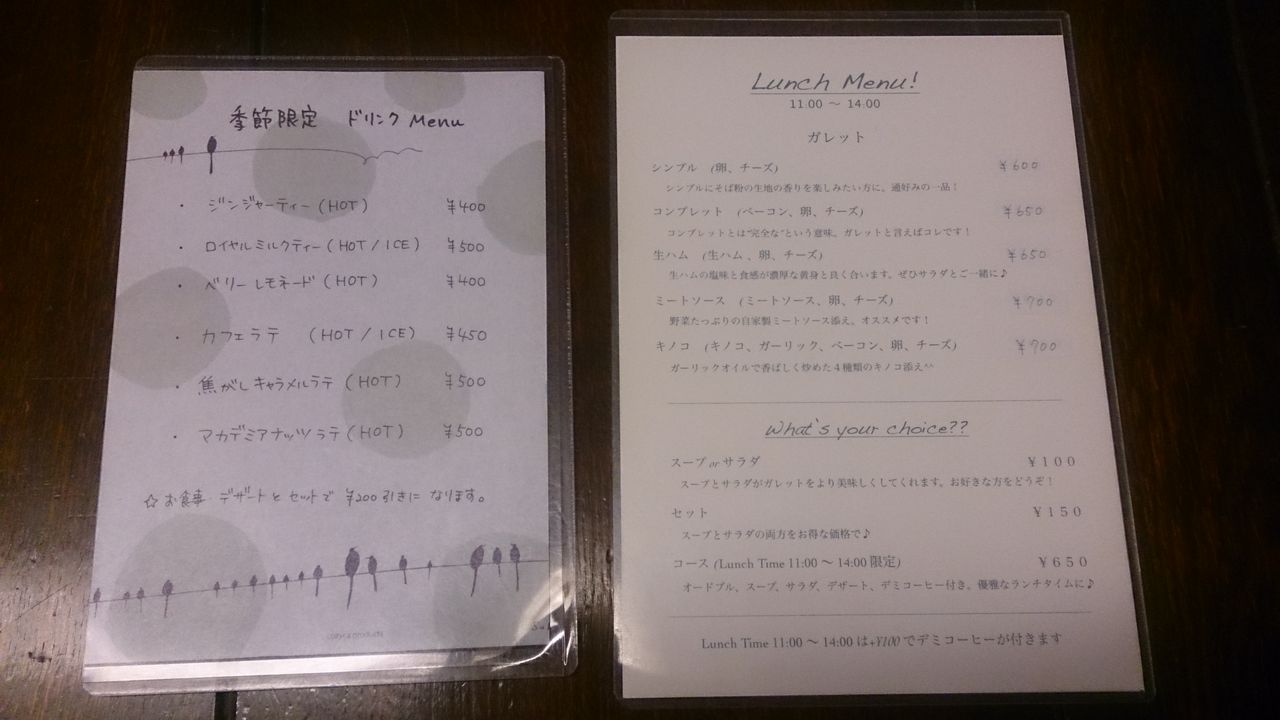 季節限定 ドリンク Menu
・ ジンジャーティー (HOT) ¥400
・ ロイヤルミルクティー (HOT / ICE) ¥500
・ ベリーレモネード (HOT) ¥400
・ カフェラテ (HOT / ICE) ¥450
・ 焦がしキャラメルラテ (HOT) ¥500
・ マカデミアナッツラテ (HOT) ¥500
☆ お食事・デザートとセットで ¥200引きになります。
Lunch Menu!
11:00 ～ 14:00
ガレット
シンプル (卵、チーズ) ¥600
シンプルにそば粉の生地の香りを楽しみたい方に。通好みの一品！
コンプレット (ベーコン、卵、チーズ) ¥650
コンプレットとは"完全な"という意味。ガレットと言えばコレです！
生ハム (生ハム、卵、チーズ) ¥650
生ハムの塩味と食感が濃厚な黄身と良く合います。ぜひサラダとご一緒に♪
ミートソース (ミートソース、卵、チーズ) ¥700
野菜たっぷりの自家製ミートソース添え。オススメです！
キノコ (キノコ、ガーリック、ベーコン、卵、チーズ) ¥700
ガーリックオイルで香ばしく炒めた４種類のキノコ添え^^
What's your choice??
スープ or サラダ ¥１００
スープとサラダがガレットをより美味しくしてくれます。お好きな方をどうぞ！
セット ¥１５０
スープとサラダの両方をお得な価格で♪
コース (Lunch Time 11:00 ～ 14:00 限定) ¥６５０
オードブル、スープ、サラダ、デザート、デミコーヒー付き。優雅なランチタイムに♪
Lunch Time 11:00 ～ 14:00 は+¥100 でデミコーヒーが付きます